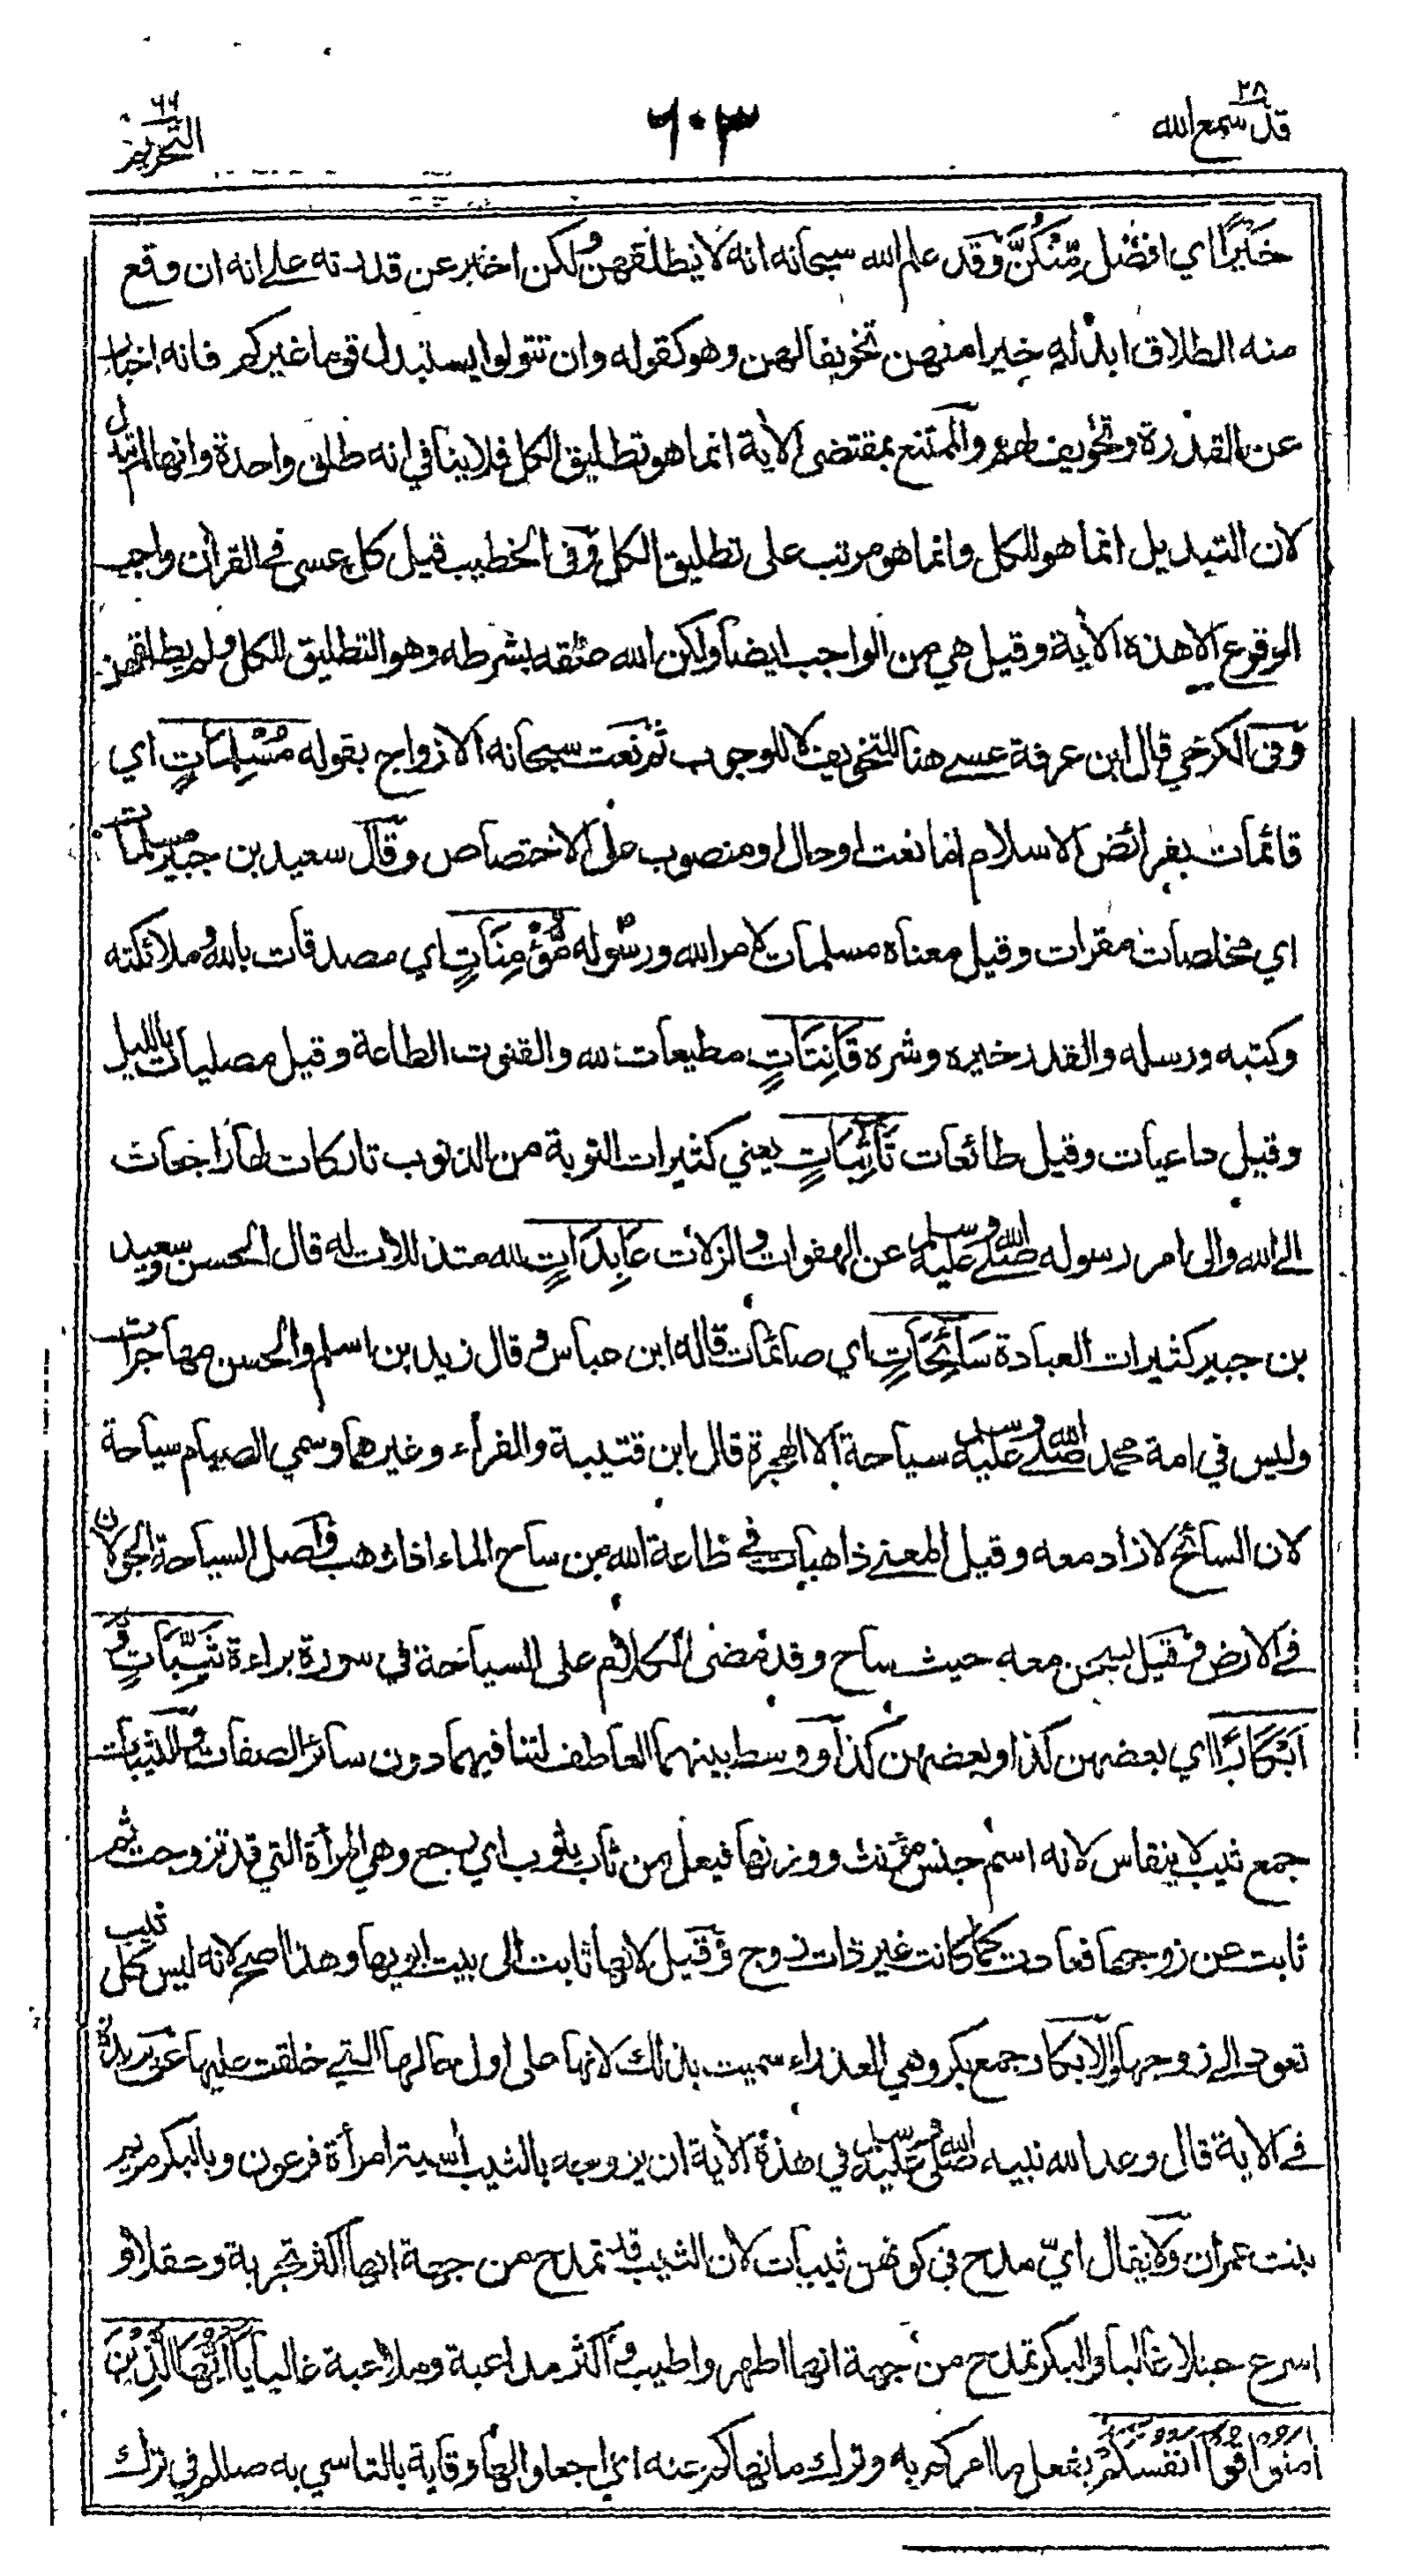 ٢٨
قد سمع الله
٦٠٣
٦٦
التحريم
خَيْرًا اي افضل مِّنْكُنَّ وقد علم الله سبحانه انه لا يطلقهن ولكن اخبر عن قدرته على انه ان وقع
منه الطلاق ابدله خيرا منهن تخويفا لهن وهو كقوله وان تتولوا يستبدل قوما غيركم فانه اخبار
عن القدرة وتخويف لهم والممتنع بمقتضى الآية انما هو تطليق الكل فلا ينافي انه طلق واحدة وانها لم تبدل
لان التبديل انما هو للكل وانما هو مرتب على تطليق الكل وفى الخطيب قيل كل عسى في القرآن واجب
الوقوع الا هذه الآية وقيل هي من الواجب ايضا ولكن الله علقه بشرطه وهو التطليق للكل ولم يطلقهن
وفى الكرخي قال ابن عرفة عسى هنا للتخويف لا للوجوب ثم نعت سبحانه الازواج بقوله مُسْلِمَاتٍ اي
قائمات بفرائض الاسلام اما نعت او حال او منصوب على الاختصاص وقال سعيد بن جبير مسلمات
اي مخلصات مقرات وقيل معناه مسلمات لامر الله ورسوله مُّؤْمِنَاتٍ اي مصدقات بالله وملائكته
وكتبه ورسله والقدر خيره وشره قَانِتَاتٍ مطيعات لله والقنوت الطاعة وقيل مصليات بالليل
وقيل داعيات وقيل طائعات تَائِبَاتٍ يعني كثيرات التوبة من الذنوب تاركات لها راجعات
الى الله والى امر رسوله صلى الله عليه وسلم عن الهفوات والزلات عَابِدَاتٍ لله متذللات له قال الحسن وسعيد
بن جبير كثيرات العبادة سَائِحَاتٍ اي صائمات قاله ابن عباس وقال زيد بن اسلم والحسن مهاجرات
وليس في امة محمد صلى الله عليه وسلم سياحة الا الهجرة قال ابن قتيبة والفراء وغيرهما وسمي الصيام سياحة
لان السائح لا زاد معه وقيل المعنى ذاهبات في طاعة الله من ساح الماء اذا ذهب واصل السياحة الجولان
في الارض وقيل يسحن معه حيث ساح وقد مضى الكلام على السياحة في سورة براءة ثَيِّبَاتٍ وَّ
اَبْكَارًا اي بعضهن كذا وبعضهن كذا ووسط بينهما العاطف لتنافيهما دون سائر الصفات والثيبات
جمع ثيب لا ينقاس لانه اسم جنس مؤنث ووزنها فيعل من ثاب يثوب اي رجع وهي المرأة التي قد تزوجت ثم
ثابت عن زوجها فعادت كما كانت غير ذات زوج وقيل لانها ثابت الى بيت ابويها وهذا اصح لانه ليس كل ثيب
تعود الى زوجها والابكار جمع بكر وهي العذراء سميت بذلك لانها على اول حالها التي خلقت عليها عن بريدة
في الآية قال وعد الله نبيه صلى الله عليه وسلم في هذه الآية ان يزوجه بالثيب أسية امرأة فرعون وبالبكر مريم
بنت عمران ولا يقال ايّ مدح في كونهن ثيبات لان الثيب قد تمدح من جهة انها اكثر تجربة وعقلا و
اسرع حبلا غالبا والبكر تمدح من جهة انها اطهر واطيب واكثر مداعبة وملاعبة غالبا يَا اَيُّهَا الَّذِيْنَ
اٰمَنُوْا قُوْا اَنْفُسَكُمْ بفعل ما امركم به وترك ما نهاكم عنه اي اجعلوا لها وقاية بالتاسي به صللم في ترك